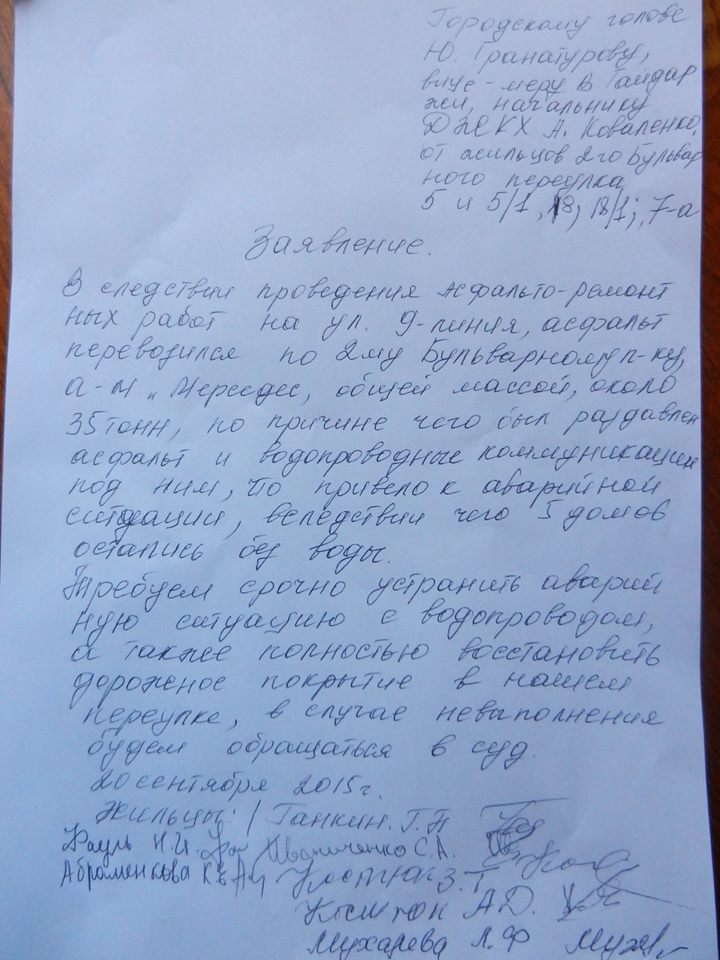 Городскому голове
Ю. Гранатурову,
вице-меру В. Гайдар
жи, начальнику
ДЖКХ А. Коваленко,
от жильцов 2го Бульвар
ного переулка
5 и 5/1, 18; 18/1; 7-а
Заявление.
В следствии проведения асфальто-ремонт
ных работ на ул. 9-линия, асфальт
перевозился по 2му Бульварному п-ку,
а-м "Мерседес, общей массой, около
35 тонн, по причине чего был раздавлен
асфальт и водопроводные коммуникации
под ним, что привело к аварийной
ситуации, вследствии чего 5 домов
остались без воды.
Требуем срочно устранить аварий
ную ситуацию с водопроводом,
а также полностью восстановить
дорожное покрытие в нашем
переулке, в случае невыполнения
будем обращаться в суд.
20 сентября 2015г.
Жильцы: / Ганкин. Г.Н
Н.И. Иваниченко С.А.
Абраменкова К. Костюк З. Г
А.Д.
Мухарева Л. Ф